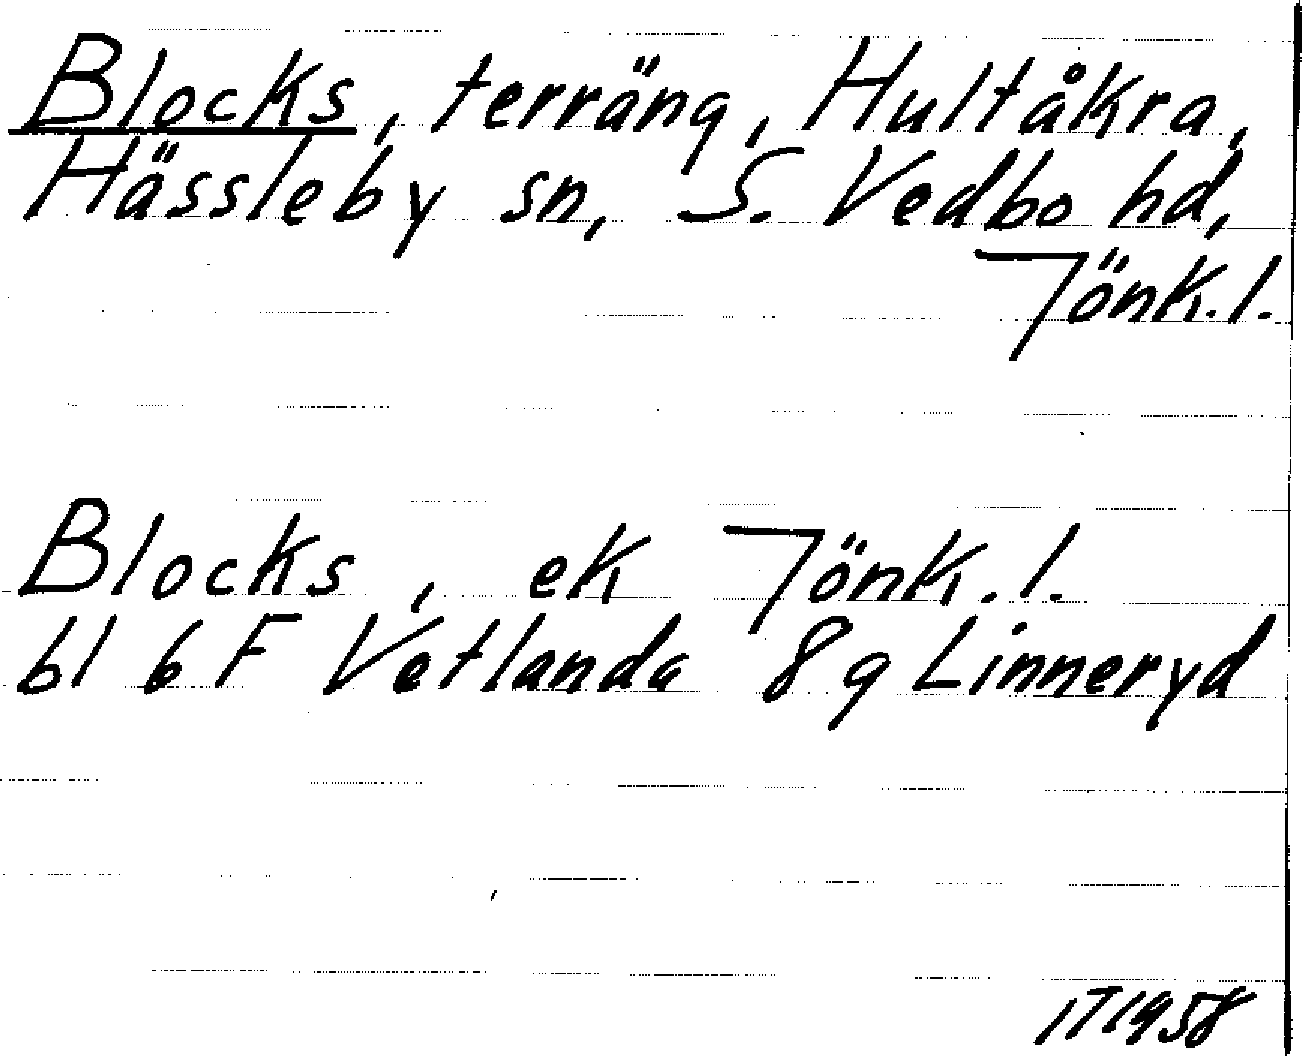 Blocks, terräng, Hultåkra,
Hässleby sn, S. Vedbo hd,
Jönk.l.
Blocks, ek Jönk.l.
bl 6 F Vetlanda 8 g Linneryd
IT 1958